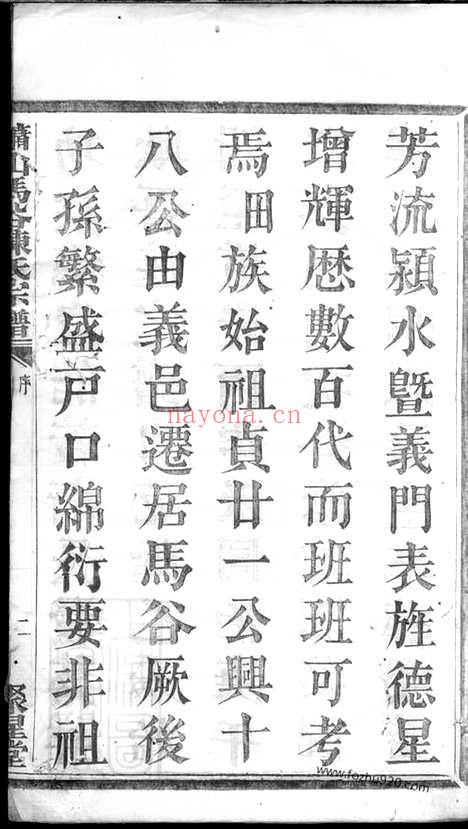 芳流潁水曁義門表旌德星
增輝歷數百代而班班可考
焉田族始祖貞廿一公興十
八公由義邑遷居馬谷厥後
子孫繁盛戸口綿衍要非祖
蕭山馬谷陳氏宗譜
序
二
聚星堂
nayona.cn
www.fozhu920.com